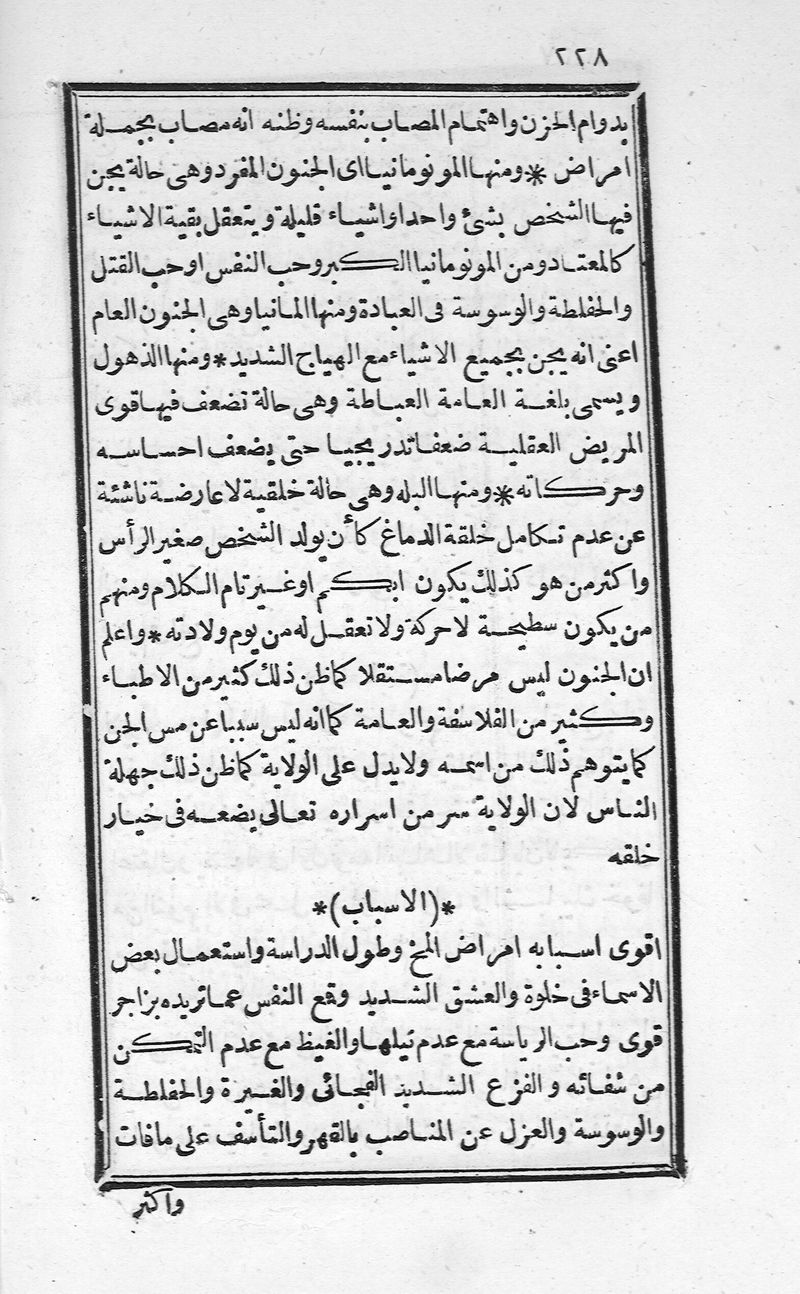 ٢٢٨
بدوام الحزن واهتمام المصاب بنفسه وظنه انه مصاب بجملة
امراض * ومنها المونومانيا اى الجنون المفرد وهى حالة يجن
فيها الشخص بشئ واحد او اشياء قليلة ويتعقل بقية الاشياء
كالمعتاد ومن المونومانيا الكبر وحب النفس او حب القتل
والخفلطة والوسوسة فى العبادة ومنها المانيا وهى الجنون العام
اعنى انه يجن بجميع الاشياء مع الهياج الشديد * ومنها الذهول
ويسمى بلغة العامة العباطة وهى حالة تضعف فيها قوى
المريض العقلية ضعفا تدريجيا حتى يضعف احساسه
وحركاته * ومنها البله وهى حالة خلقية لا عارضة ناشئة
عن عدم تكامل خلقة الدماغ كأن يولد الشخص صغير الرأس
واكثر من هو كذلك يكون ابكم او غير تام الكلام ومنهم
من يكون سطيحة لا حركة ولا تعقل له من يوم ولادته * واعلم
ان الجنون ليس مرضا مستقلا كما ظن ذلك كثير من الاطباء
وكثير من الفلاسفة والعامة كما انه ليس سببا عن مس الجن
كما يتوهم ذلك من اسمه ولا يدل على الولاية كما ظن ذلك جهلة
الناس لان الولاية سر من اسراره تعالى يضعه فى خيار
خلقه
*(الاسباب)*
اقوى اسبابه امراض المخ وطول الدراسة واستعمال بعض
الاسماء فى خلوة والعشق الشديد وقمع النفس عما تريده بزاجر
قوى وحب الرياسة مع عدم نيلها والغيظ مع عدم التمكن
من شفائه والفزع الشديد الفجائى والغيرة والخفلطة
والوسوسة والعزل عن المناصب بالقهر والتأسف على مافات
واكثر